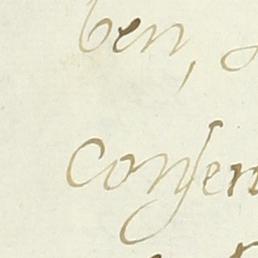 ben,
conser